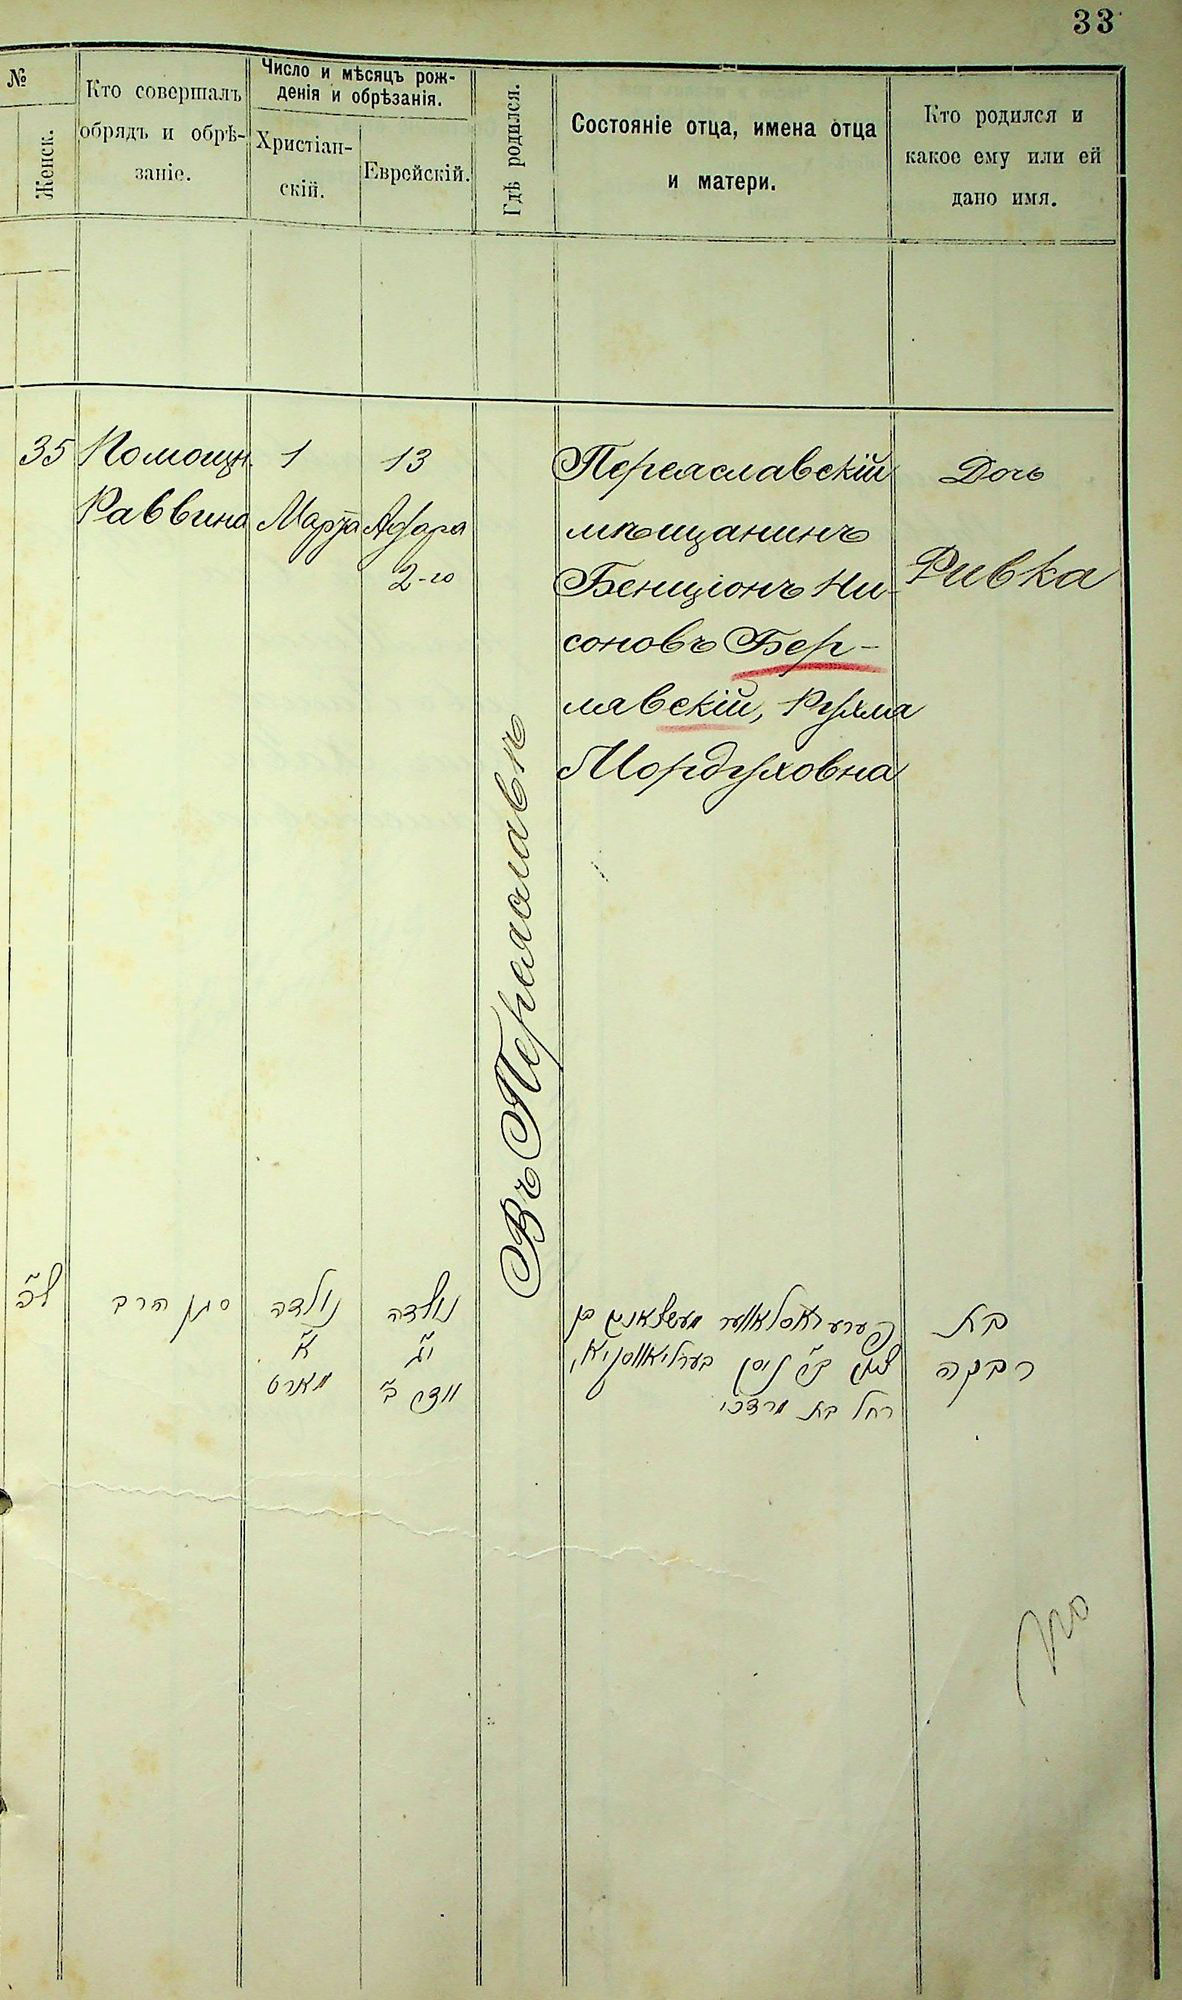 33
№
Женск.
Кто совершалъ
обрядъ и обрѣ-
заніе.
Число и мѣсяцъ рож-
денія и обрѣзанія.
Христіан-
скій.
Еврейскій.
Гдѣ родился.
Состояніе отца, имена отца
и матери.
Кто родился и
какое ему или ей
дано имя.
35
Помощн.
Раввина
1
Марта
13
Адара
2-го
Въ Переяславѣ
Переяславскій
мѣщанинъ
Бенціонъ Ни-
соновъ Бер-
лявскій, Рухля
Мордуховна
Дочь
Ривка
ל״ה
סגן הרב
נולדה
א׳
מארט
נולדה
י״ג
אדר ב׳
פערעיאסלאווער מעשצאנין בן
ציון ב״ר ניסן בערליאווסקיא,
רחל בת מרדכי
בת
רבקה